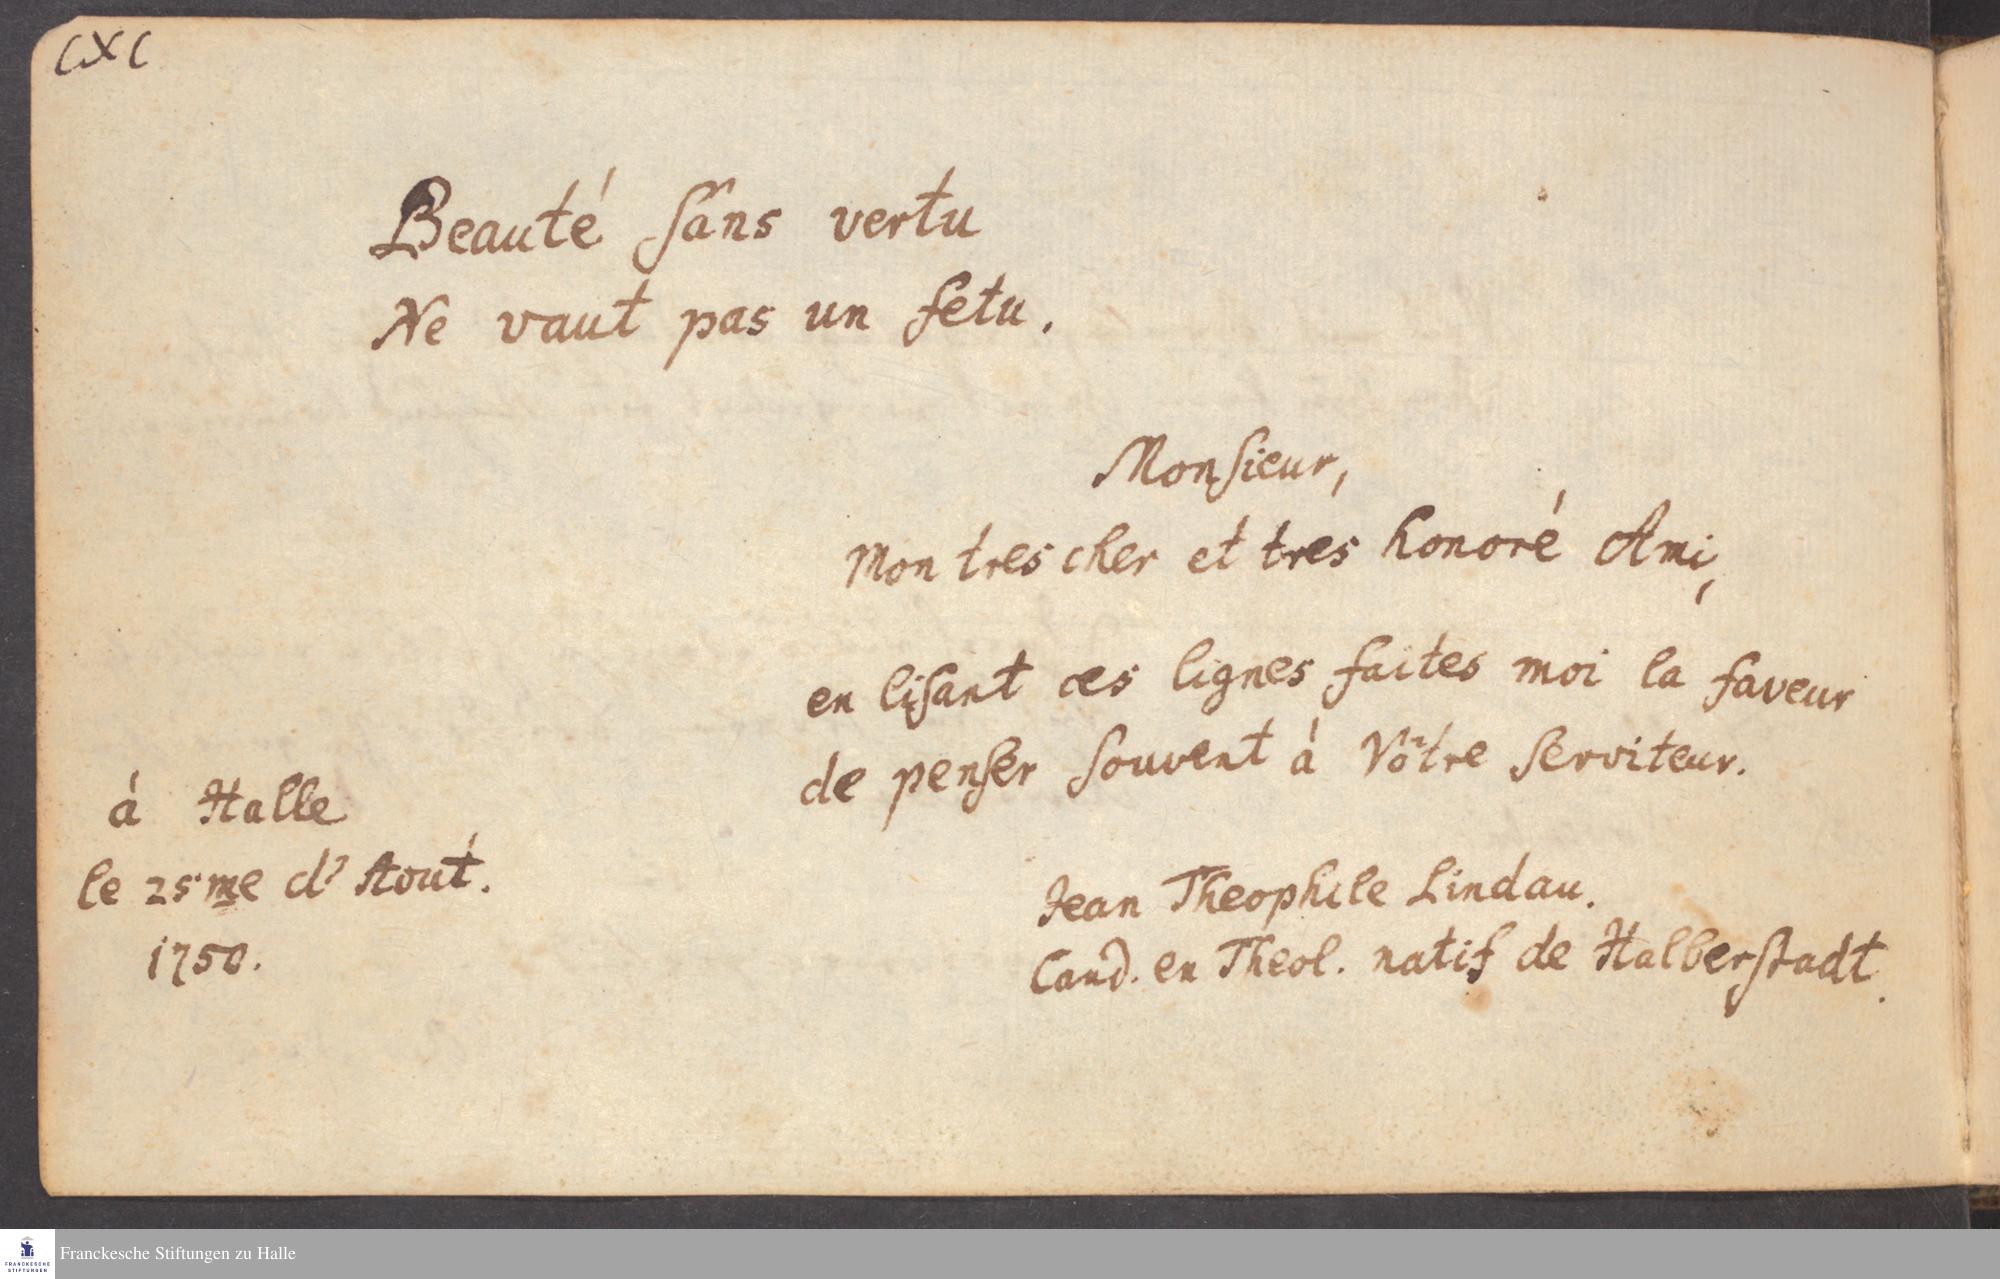 CXC
Beauté sans vertu
Ne vaut pas un fetu.
Monsieur,
Mon tres cher et tres honoré Ami,
en lisant ces lignes faites moi la faveur
de penser souvent à Vôtre serviteur.
à Halle
le 25me d'Aout.
1750.
Jean Theophile Lindau.
Cand. en Theol. natif de Halberstadt.
FRANCKESCHE
STIFTUNGEN
Franckesche Stiftungen zu Halle